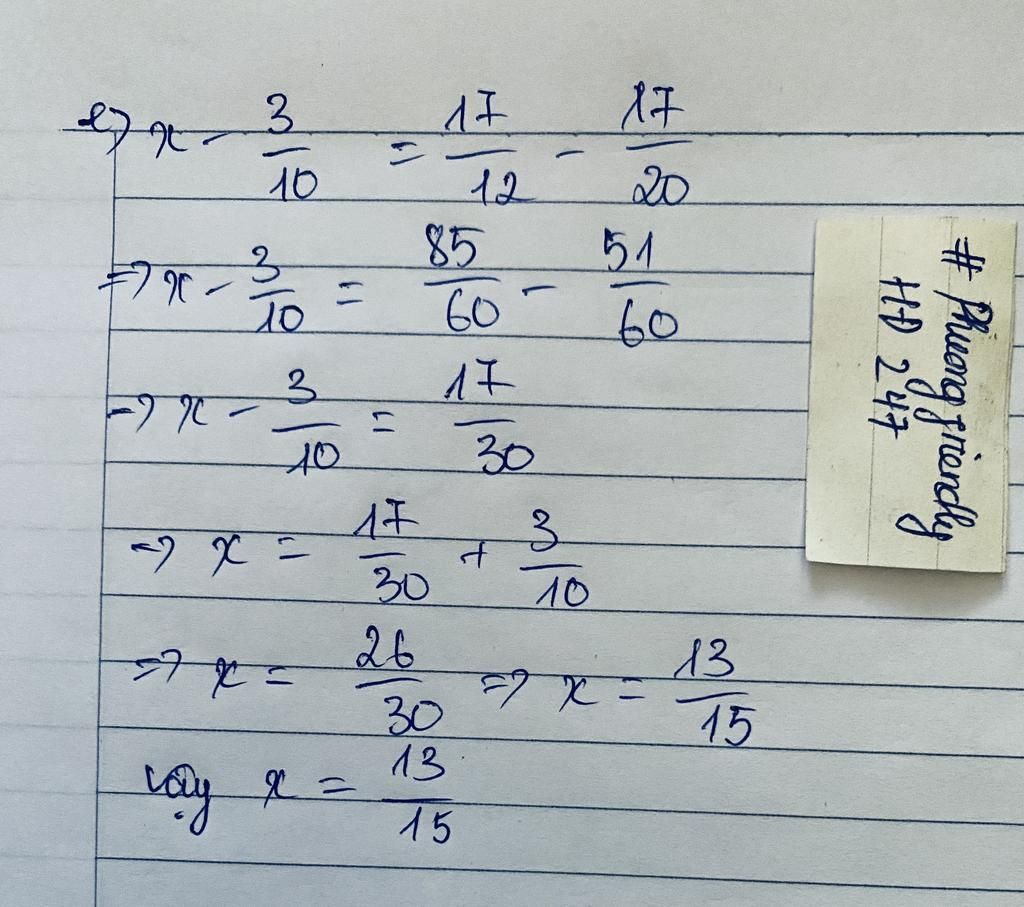 e) x - 3/10 = 17/12 - 17/20
=> x - 3/10 = 85/60 - 51/60
-> x - 3/10 = 17/30
-> x = 17/30 + 3/10
=> x = 26/30 => x = 13/15
vậy x = 13/15
# Phuong friendly
HD 247